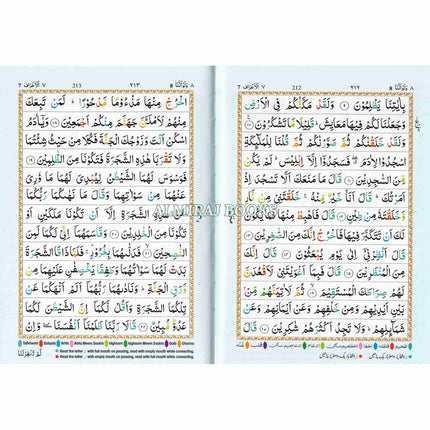 ولواننا ٨ ٢١٢ 212 الاعراف ٧
بِاٰيٰتِنَا يَظْلِمُوْنَ ﴿۹﴾ وَلَقَدْ مَكَّنّٰكُمْ فِي الْاَرْضِ
وَجَعَلْنَا لَكُمْ فِيْهَا مَعَايِشَ ؕ قَلِيْلًا مَّا تَشْكُرُوْنَ ﴿۱۰﴾
وَلَقَدْ خَلَقْنٰكُمْ ثُمَّ صَوَّرْنٰكُمْ ثُمَّ قُلْنَا لِلْمَلٰٓئِكَةِ
اسْجُدُوْا لِاٰدَمَ ۖ فَسَجَدُوْٓا اِلَّاۤ اِبْلِيْسَ ؕ لَمْ يَكُنْ
مِّنَ السّٰجِدِيْنَ ﴿۱۱﴾ قَالَ مَا مَنَعَكَ اَلَّا تَسْجُدَ اِذْ
اَمَرْتُكَ ؕ قَالَ اَنَا خَيْرٌ مِّنْهُ ۚ خَلَقْتَنِيْ مِنْ نَّارٍ
وَّخَلَقْتَهٗ مِنْ طِيْنٍ ﴿۱۲﴾ قَالَ فَاهْبِطْ مِنْهَا فَمَا يَكُوْنُ
لَكَ اَنْ تَتَكَبَّرَ فِيْهَا فَاخْرُجْ اِنَّكَ مِنَ الصّٰغِرِيْنَ ﴿۱۳﴾
قَالَ اَنْظِرْنِيْۤ اِلٰى يَوْمِ يُبْعَثُوْنَ ﴿۱۴﴾ قَالَ اِنَّكَ
مِنَ الْمُنْظَرِيْنَ ﴿۱۵﴾ قَالَ فَبِمَاۤ اَغْوَيْتَنِيْ لَاَقْعُدَنَّ
لَهُمْ صِرَاطَكَ الْمُسْتَقِيْمَ ﴿۱۶﴾ ثُمَّ لَاٰتِيَنَّهُمْ مِّنْۢ بَيْنِ
اَيْدِيْهِمْ وَمِنْ خَلْفِهِمْ وَعَنْ اَيْمَانِهِمْ وَعَنْ
شَمَآئِلِهِمْ ؕ وَلَا تَجِدُ اَكْثَرَهُمْ شٰكِرِيْنَ ﴿۱۷﴾ قَالَ
ولواننا ٨ ٢١٣ 213 الاعراف ٧
اخْرُجْ مِنْهَا مَذْءُوْمًا مَّدْحُوْرًا ؕ لَمَنْ تَبِعَكَ
مِنْهُمْ لَاَمْلَئَنَّ جَهَنَّمَ مِنْكُمْ اَجْمَعِيْنَ ﴿۱۸﴾ وَيٰۤاٰدَمُ
اسْكُنْ اَنْتَ وَزَوْجُكَ الْجَنَّةَ فَكُلَا مِنْ حَيْثُ شِئْتُمَا
وَلَا تَقْرَبَا هٰذِهِ الشَّجَرَةَ فَتَكُوْنَا مِنَ الظّٰلِمِيْنَ ﴿۱۹﴾
فَوَسْوَسَ لَهُمَا الشَّيْطٰنُ لِيُبْدِيَ لَهُمَا مَا وٗرِيَ
عَنْهُمَا مِنْ سَوْاٰتِهِمَا وَقَالَ مَا نَهٰىكُمَا رَبُّكُمَا
عَنْ هٰذِهِ الشَّجَرَةِ اِلَّاۤ اَنْ تَكُوْنَا مَلَكَيْنِ اَوْ
تَكُوْنَا مِنَ الْخٰلِدِيْنَ ﴿۲۰﴾ وَقَاسَمَهُمَاۤ اِنِّيْ لَكُمَا لَمِنَ
النّٰصِحِيْنَ ﴿۲۱﴾ فَدَلّٰىهُمَا بِغُرُوْرٍ ۚ فَلَمَّا ذَاقَا الشَّجَرَةَ
بَدَتْ لَهُمَا سَوْاٰتُهُمَا وَطَفِقَا يَخْصِفٰنِ عَلَيْهِمَا مِنْ
وَّرَقِ الْجَنَّةِ ؕ وَنَادٰىهُمَا رَبُّهُمَاۤ اَلَمْ اَنْهَكُمَا عَنْ
تِلْكُمَا الشَّجَرَةِ وَاَقُلْ لَّكُمَاۤ اِنَّ الشَّيْطٰنَ لَكُمَا
عَدُوٌّ مُّبِيْنٌ ﴿۲۲﴾ قَالَا رَبَّنَا ظَلَمْنَاۤ اَنْفُسَنَا ٚ وَاِنْ
لَّمْ تَغْفِرْ لَنَا
Read the letter with full mouth on pausing, read with empty mouth while connecting.
Read the letter with empty mouth on pausing, read with full mouth while connecting.
AL MIRAJ BOOKS